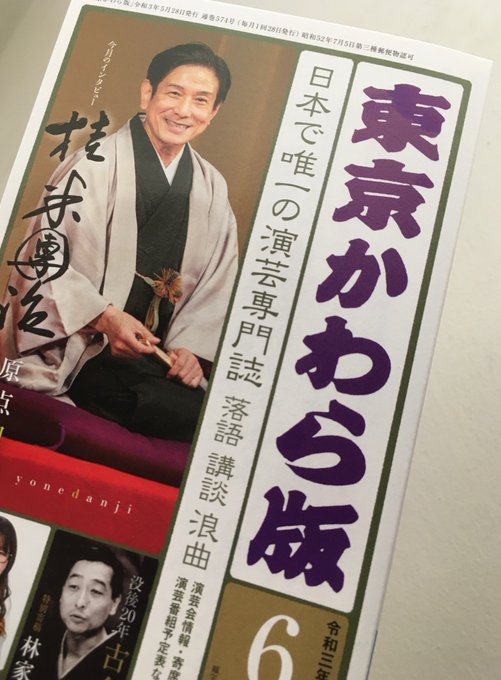 東京かわら版」令和3年5月28日発行 通巻574号(毎月1回28日発行) 昭和52年7月5日第三種郵便物認可
東京かわら版
日本で唯一の演芸専門誌 落語 講談 浪曲
今月のインタビュー
桂 米團治
原点
yonedanji
演芸会情報・寄席
演芸番組予定表な
令和三年
6
没後20年 古
特別寄稿
林家